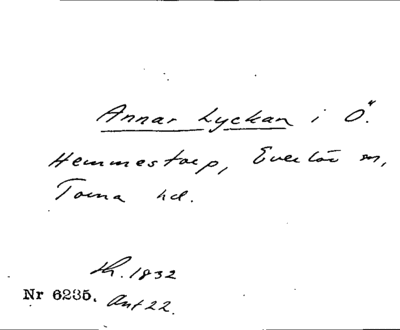 Annar Lyckan i Ö.
Hemmestorp, Everlöv sn,
Torna hd.
Sk. 1832
Nr 6235. Ant 22.